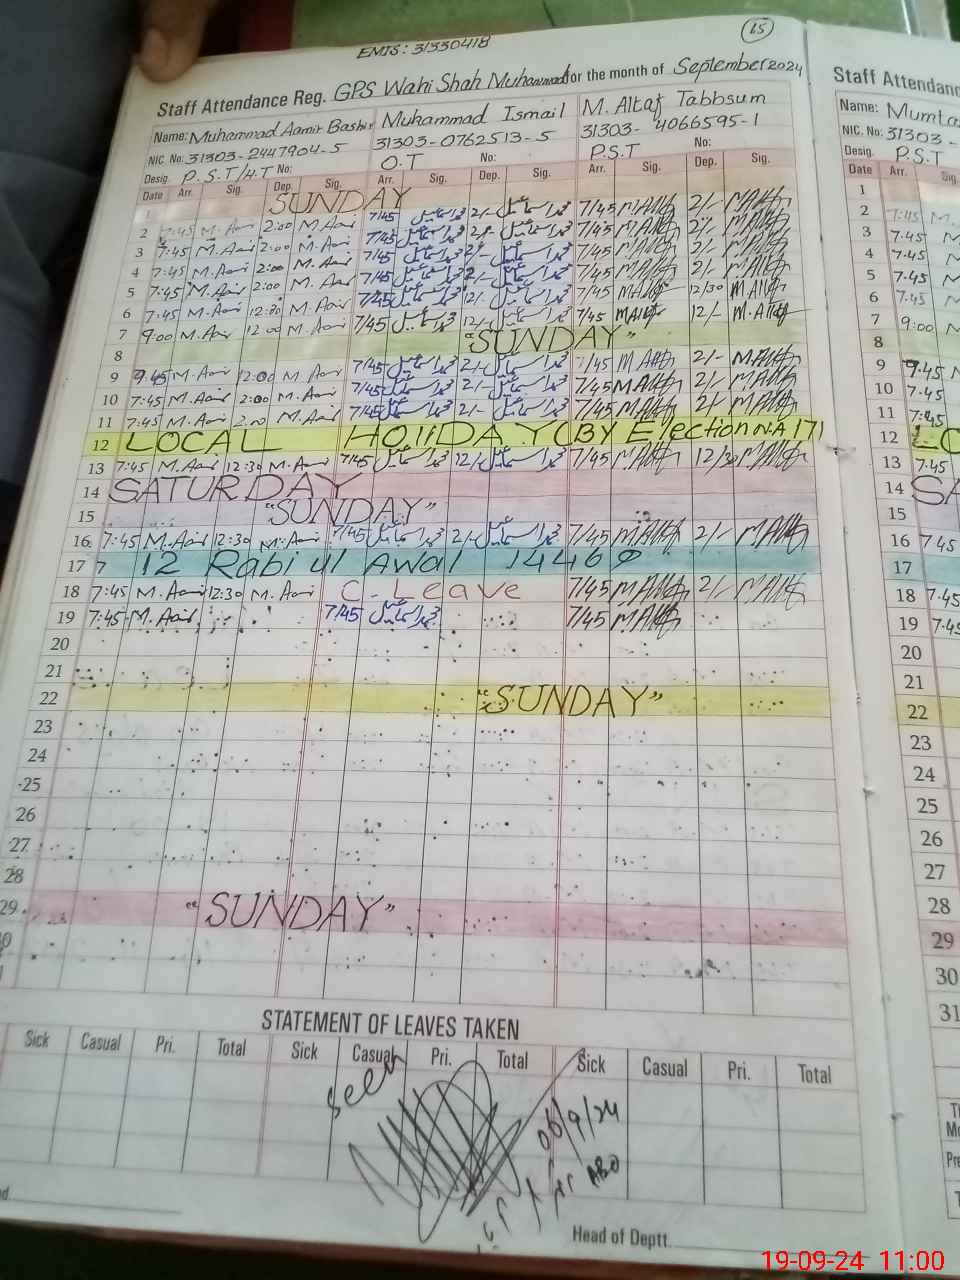 15
EMIS: 31330418
Staff Attendance Reg. GPS Wahi Shah Muhammad for the month of September 2024
Name: Muhammad Aamir Bashir Muhammad Ismail M. Altaf Tabbsum
NIC. No: 31303-2447904-5 31303-0762513-5 31303-4066595-1
Desig. P.S.T/H.T No: O.T No: P.S.T No:
Date Arr. Sig. Dep. Sig. Arr. Sig. Dep. Sig. Arr. Sig. Dep. Sig.
1 SUNDAY
2 7:45 M. Aamir 2:00 M. Aamir 7/45 محمد اسماعیل 2/- محمد اسماعیل 7/45 MAltaf 2/- MAltaf
3 7:45 M. Aamir 2:00 M. Aamir 7/45 محمد اسماعیل 2/- محمد اسماعیل 7/45 MAltaf 2/- MAltaf
4 7:45 M. Aamir 2:00 M. Aamir 7/45 محمد اسماعیل 2/- محمد اسماعیل 7/45 MAltaf 2/- MAltaf
5 7:45 M. Aamir 2:00 M. Aamir 7/45 محمد اسماعیل 2/- محمد اسماعیل 7/45 MAltaf 2/- MAltaf
6 7:45 M. Aamir 12:30 M. Aamir 7/45 محمد اسماعیل 12/- محمد اسماعیل 7/45 MAltaf 12/30 MAltaf
7 9:00 M. Aamir 12:00 M. Aamir 7/45 محمد اسماعیل 12/- محمد اسماعیل 7/45 MAltaf 12/- M.Altaf
8 "SUNDAY"
9 9.45 M. Aamir 12:00 M. Aamir 7/45 محمد اسماعیل 2/- محمد اسماعیل 7/45 MAltaf 2/- MAltaf
10 7:45 M. Aamir 2:00 M. Aamir 7/45 محمد اسماعیل 2/- محمد اسماعیل 7/45 MAltaf 2/- MAltaf
11 7:45 M. Aamir 2:00 M. Aamir 7/45 محمد اسماعیل 2/- محمد اسماعیل 7/45 MAltaf 2/- MAltaf
12 LOCAL HOliDAY (BY Election N.A 171)
13 7:45 M. Aamir 12:30 M. Aamir 7/45 محمد اسماعیل 12/- محمد اسماعیل 7/45 MAltaf 12/30 MAltaf
14 SATURDAY
15 "SUNDAY"
16 7:45 M. Aamir 12:30 M. Aamir 7/45 محمد اسماعیل 2/- محمد اسماعیل 7/45 MAltaf 2/- MAltaf
17 7 12 Rabi ul Awal 1446
18 7:45 M. Aamir 12:30 M. Aamir C. Leave 7/45 MAltaf 2/- MAltaf
19 7:45 M. Aamir 7/45 محمد اسماعیل 7/45 MAltaf
20
21
22 "SUNDAY"
23
24
25
26
27
28
29 "SUNDAY"
STATEMENT OF LEAVES TAKEN
Sick Casual Pri. Total Sick Casual Pri. Total Sick Casual Pri. Total
Seen
06/9/24
Head of Deptt.
Staff Attendance
Name: Mumta
NIC. No: 31303-
Desig. P.S.T
Date Arr. Sig.
1
2 7:45 M.
3 7:45 M
4 7:45 M
5 7:45 M
6 7:45 M
7 9:00 M
8
9 9.45 M
10 7:45
11 7:45
12 LO
13 7.45
14 SA
15
16 7 45
17
18 7.45
19 7.45
20
21
22
23
24
25
26
27
28
29
30
31
19-09-24 11:00